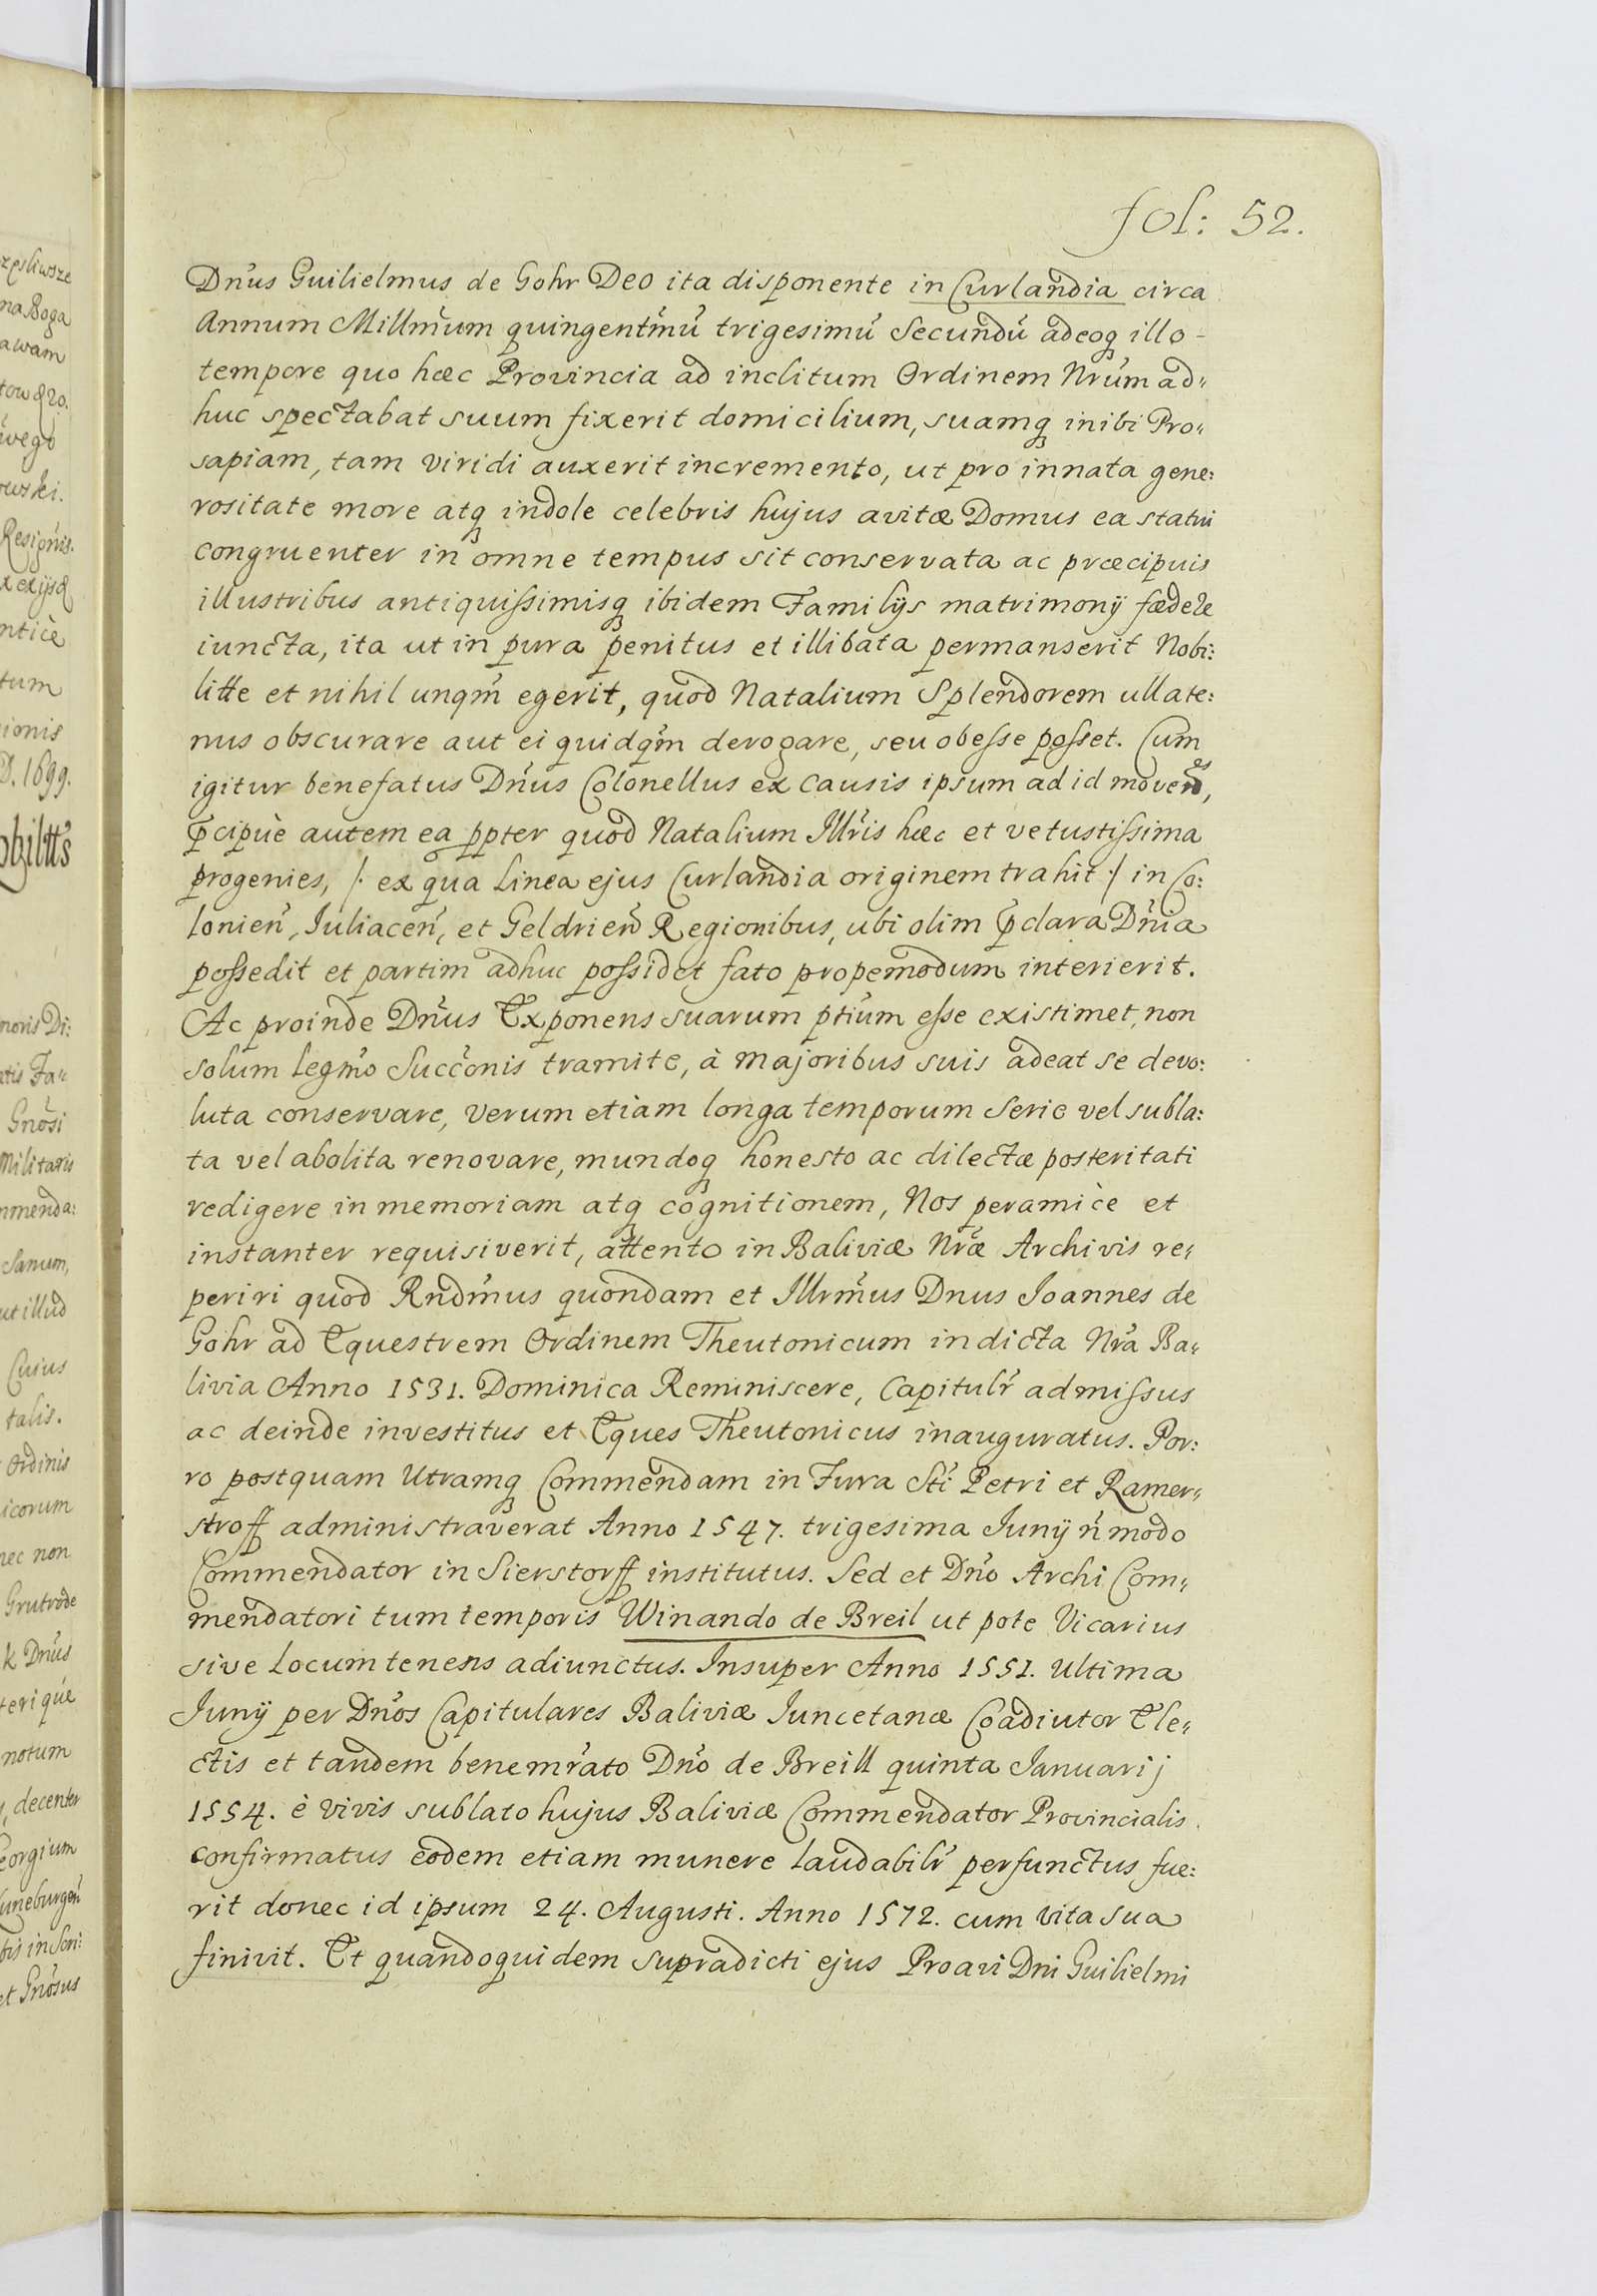 fol: 52.
Dn̄us Guilielmus de Gohr Deo ita disponente in Curlandia circa
Annum Millm̄um quingentm̄ū trigesimū Secundū adeoq illo-
tempore quo hæc Provincia ad inclitum Ordinem Nrūm ad„
huc spectabat suum fixerit domicilium, suamq inibi Pro„
sapiam, tam viridi auxerit incremento, ut pro innata gene:
rositate more atq indole celebris hujus avitæ Domus ea statui
congruenter in omne tempus sit conservata ac præcipuis
illustribus antiquissimisq ibidem Familijs matrimonij fædere
iuncta, ita ut in pura penitus et illibata permanserit Nobi:
litte et nihil unqm̄ egerit, quod Natalium Splendorem ullate:
nus obscurare aut ei quidqm̄ derogare, seu obesse posset. Cum
igitur benefatus Dn̄us Colonellus ex causis ipsum ad id moven̄es,
p̄cipuè autem ea ppter quod Natalium Illr̄is hæc et vetustissima
progenies, /: ex qua Linea ejus Curlandia originem trahit :/ in Co:
lonien̄, Iuliacen̄, et Geldrien̄ Regionibus, ubi olim p̄clara Dn̄ia
possedit et partim adhuc possidet fato propemodum interierit.
Ac proinde Dn̄us Exponens suarum ptiūm esse existimet, non
solum legm̄o Succōnis tramite, à majoribus suis adeat se devo:
luta conservare, verum etiam longa temporum Serie vel subla:
ta vel abolita renovare, mundoq honesto ac dilectæ posteritati
redigere in memoriam atq cognitionem, Nos peramicè et
instanter requisiverit, attento in Baliviæ Nrǣ Archivis re„
periri quod Rndm̄us quondam et Illrm̄us Dnus Joannes de
Gohr ad Equestrem Ordinem Theutonicum in dicta Nrā Ba„
livia Anno 1531. Dominica Reminiscere, Capitulr̄ admissus
ac deinde investitus et Eques Theutonicus inauguratus. Por:
ro postquam Utramq Commendam in Jura Sti Petri et Ramer„
stroff administraverat Anno 1547. trigesima Junij n̄ modo
Commendator in Sierstorff institutus. Sed et Dn̄o Archi Com„
mendatori tum temporis Winando de Breil ut pote Vicarius
sive Locumtenens adiunctus. Insuper Anno 1551. Ultima
Junij per Dn̄os Capitulares Baliviæ Juncetanæ Coadiutor Ele„
ctis et tandem benemr̄ato Dn̄o de Breill quinta Januarij
1554. è vivis sublato hujus Baliviæ Commendator Provincialis
confirmatus eodem etiam munere laudabilr̄ perfunctus fue:
rit donec id ipsum 24. Augusti. Anno 1572. cum vita sua
finivit. Et quandoquidem supradicti ejus Proavi Dni Guilielmi